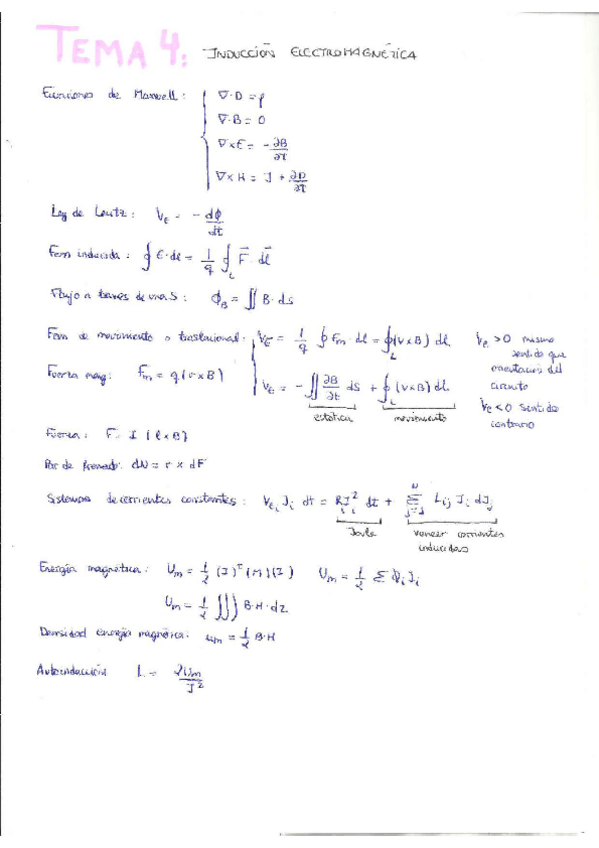 TEMA 4: INDUCCIÓN ELECTROMAGNÉTICA
Ecuaciones de Maxwell: ∇·D = ρ
∇·B = 0
∇×E = -∂B/∂t
∇×H = J + ∂D/∂t
Ley de Lentz: Vε = - dϕ/dt
Fem inducida: ∮ E·dl = 1/q ∮_L F⃗·dl⃗
Flujo a través de una S: ϕ_B = ∬ B·ds
Fem de movimiento o traslacional: Vε = 1/q ∮ Fm·dl = ∮_L (v×B) dl Vε > 0 mismo sentido que orientación del circuito
Fuerza mag: Fm = q(v×B)
Vε = - ∬ ∂B/∂t ds + ∮_L (v×B) dl Vε < 0 sentido contrario
estática movimiento
Fuerza: F = I (l×B)
Par de fuerzas: dN = r × dF
Sistemas de corrientes constantes: Vεi Ji dt = R_i I_i² dt + Σ_{j=1}^{N} Lij Ji dJj
Joule vencer corrientes inducidas
Energía magnética: Um = 1/2 (I)^T (M)(I) Um = 1/2 Σ Φi Ji
Um = 1/2 ∭ B·H·dz
Densidad energía magnética: um = 1/2 B·H
Autoinducción L = 2Um/I²